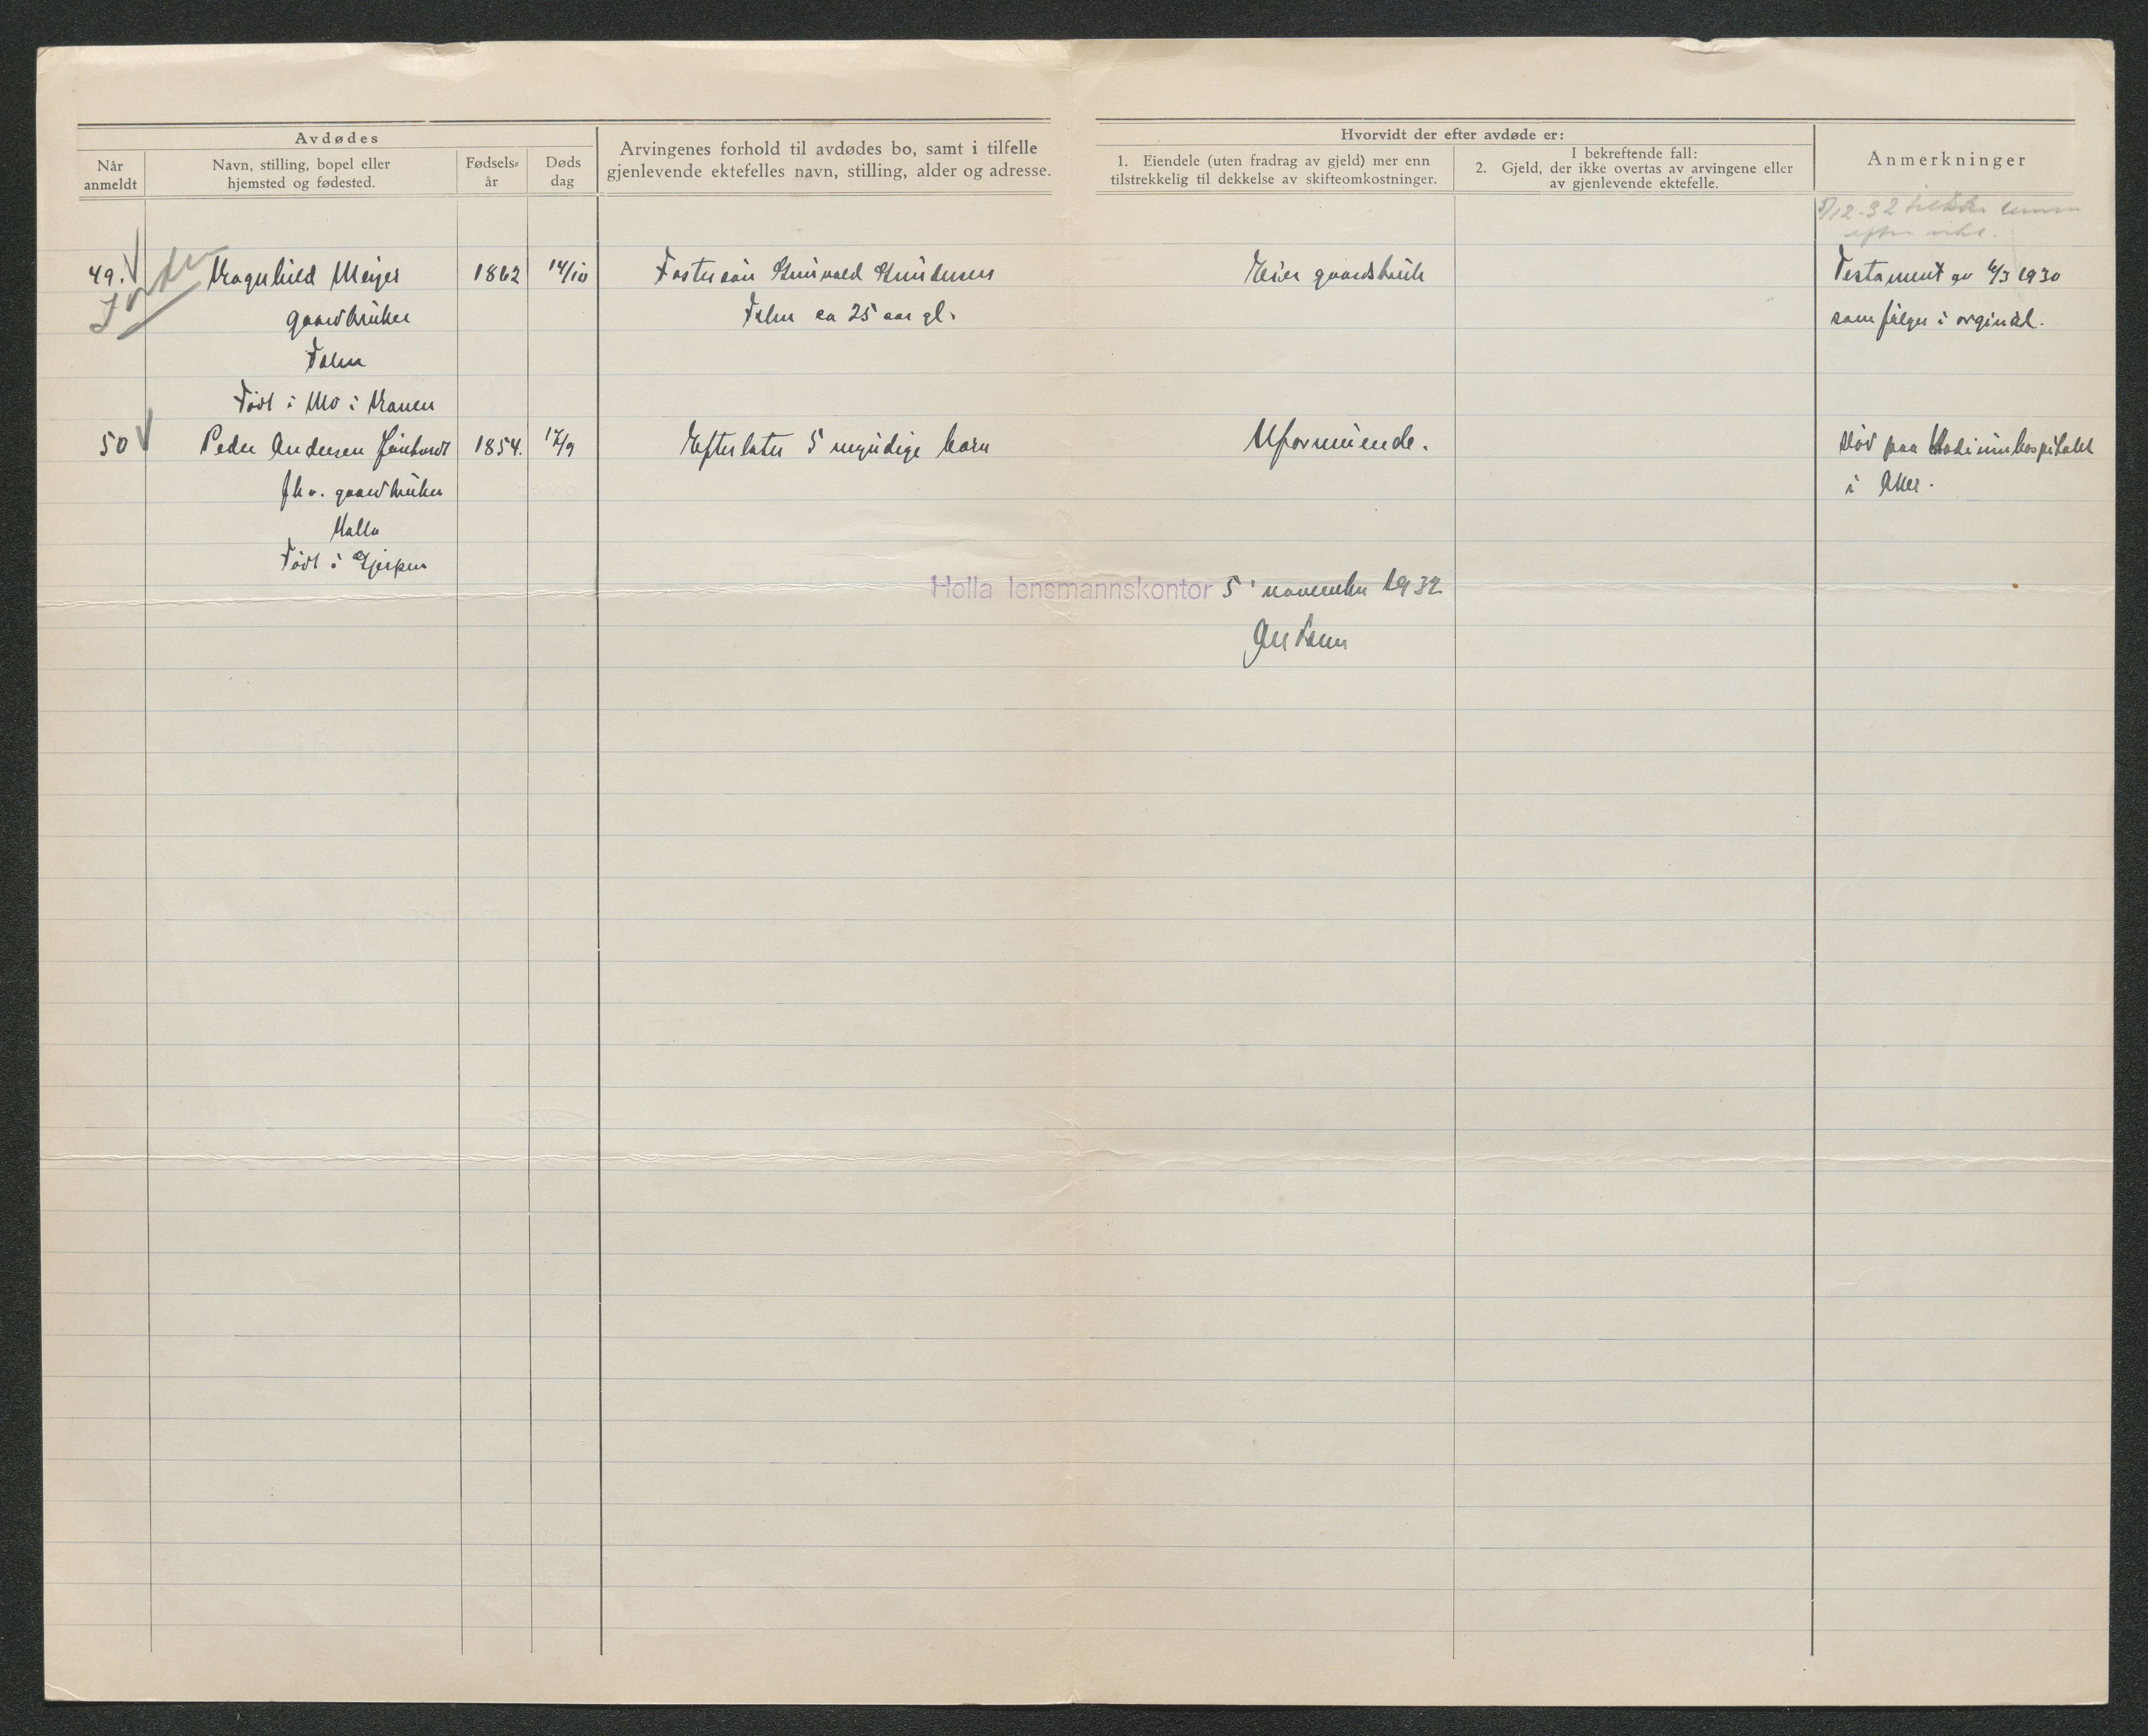 Avdødes
Når anmeldt
Navn, stilling, bopel eller hjemsted og fødested.
Fødsels-år
Døds dag
Arvingenes forhold til avdødes bo, samt i tilfelle
gjenlevende ektefelles navn, stilling, alder og adresse.
Hvorvidt der efter avdøde er:
1. Eiendele (uten fradrag av gjeld) mer enn
tilstrekkelig til dekkelse av skifteomkostninger.
I bekreftende fall:
2. Gjeld, der ikke overtas av arvingene eller
av gjenlevende ektefelle.
Anmerkninger
5/12-32
49. Ragnhild Meijer 1862 14/10 Fostersøn Gunvald Gundersen Eier gaardsbruk Testament av 6/3 1930
gaardbruker ca 25 aar gl. som følger i orginal.
Født i Mo i Ranen
50 Peder Andersen 1854. 17/9 Efterlater 5 myndige barn Uformuende. Død paa Radiumhospitalet
fhv. gaardbruker i Aker.
Holla
Født i Gjerpen
Holla lensmannskontor 5' november 1932